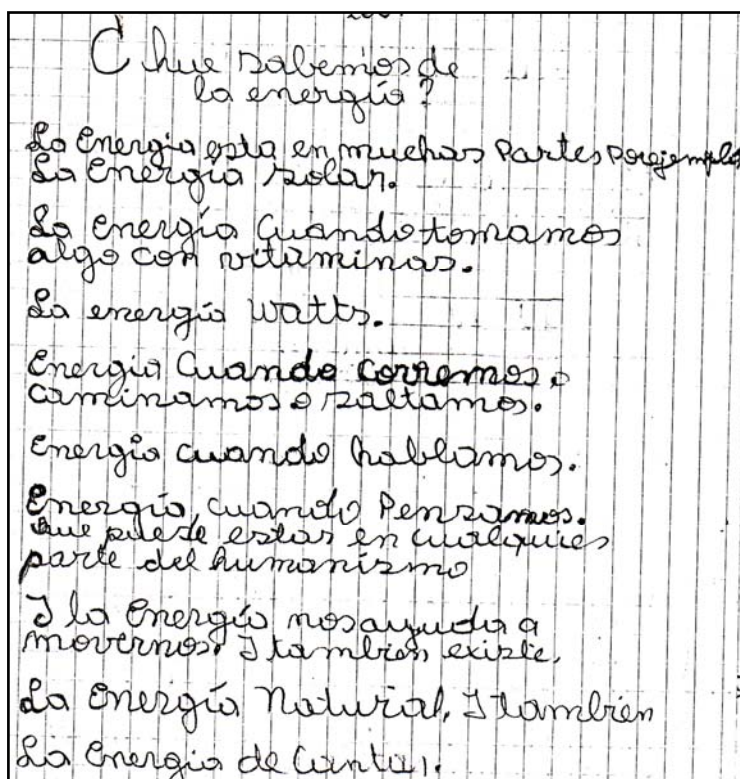 ¿ hue sabemos de
la energía?
La Energia esta en muchas Partes Por ejemplo
La Energía solar.
La energía Cuando tomamos
algo con vitaminas.
La energía Watts.
Energía Cuando corremos o
caminamos o saltamos.
Energía cuando hablamos.
Energía, cuando Pensamos.
que puede estar en cualquier
parte del humanismo
I la Energía nos ayuda a
movernos. I tambien existe.
La Energía Natural, I tambien
La Energia de